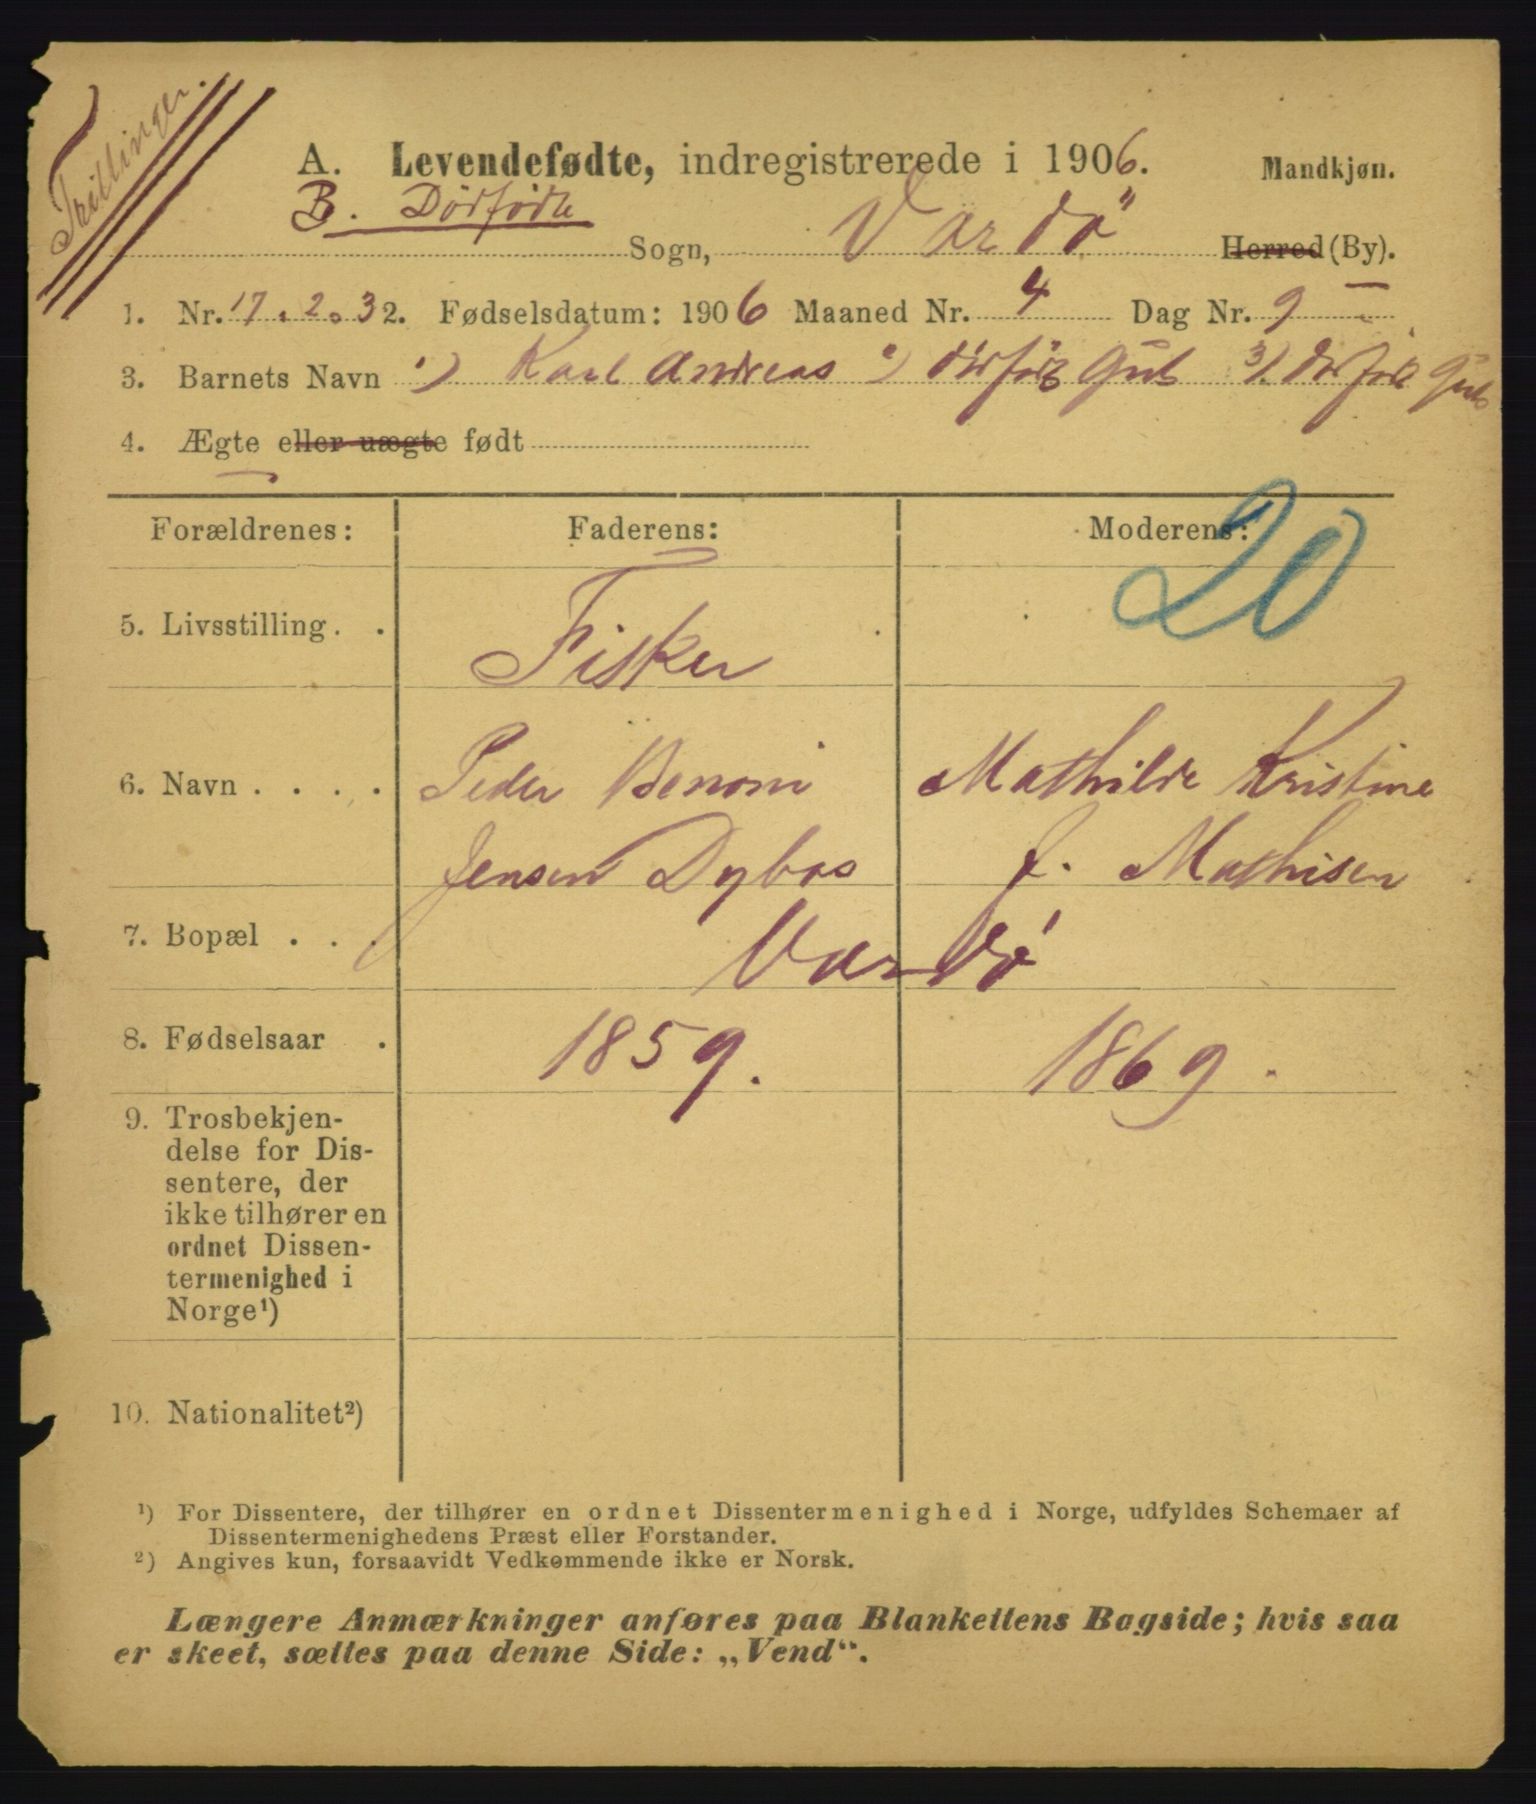 Trillinger.
A. Levendefødte, indregistrerede i 1906. Mandkjøn.
B. Dødfødte
Sogn, Vardø Herred (By).
1. Nr. 17. 2. 3 2. Fødselsdatum: 1906 Maaned Nr. 4 Dag Nr. 9
3. Barnets Navn 1) Karl Andreas 2) dødfødt Gut 3) dødfødt Gut
4. Ægte eller uægte født
Forældrenes: Faderens: Moderens:
20
5. Livsstilling. . Fisker
6. Navn . . . . Peder Benoni Mathilde Kristine
Jensen Dybos f. Mathisen
7. Bopæl . . . Vardø
8. Fødselsaar . 1859. 1869.
9. Trosbekjen-
delse for Dis-
sentere, der
ikke tilhører en
ordnet Dissen-
termenighed i
Norge¹)
10. Nationalitet²)
¹) For Dissentere, der tilhører en ordnet Dissentermenighed i Norge, udfyldes Schemaer af
Dissentermenighedens Præst eller Forstander.
²) Angives kun, forsaavidt Vedkommende ikke er Norsk.
Længere Anmærkninger anføres paa Blankettens Bagside; hvis saa
er skeet, sættes paa denne Side: „Vend“.